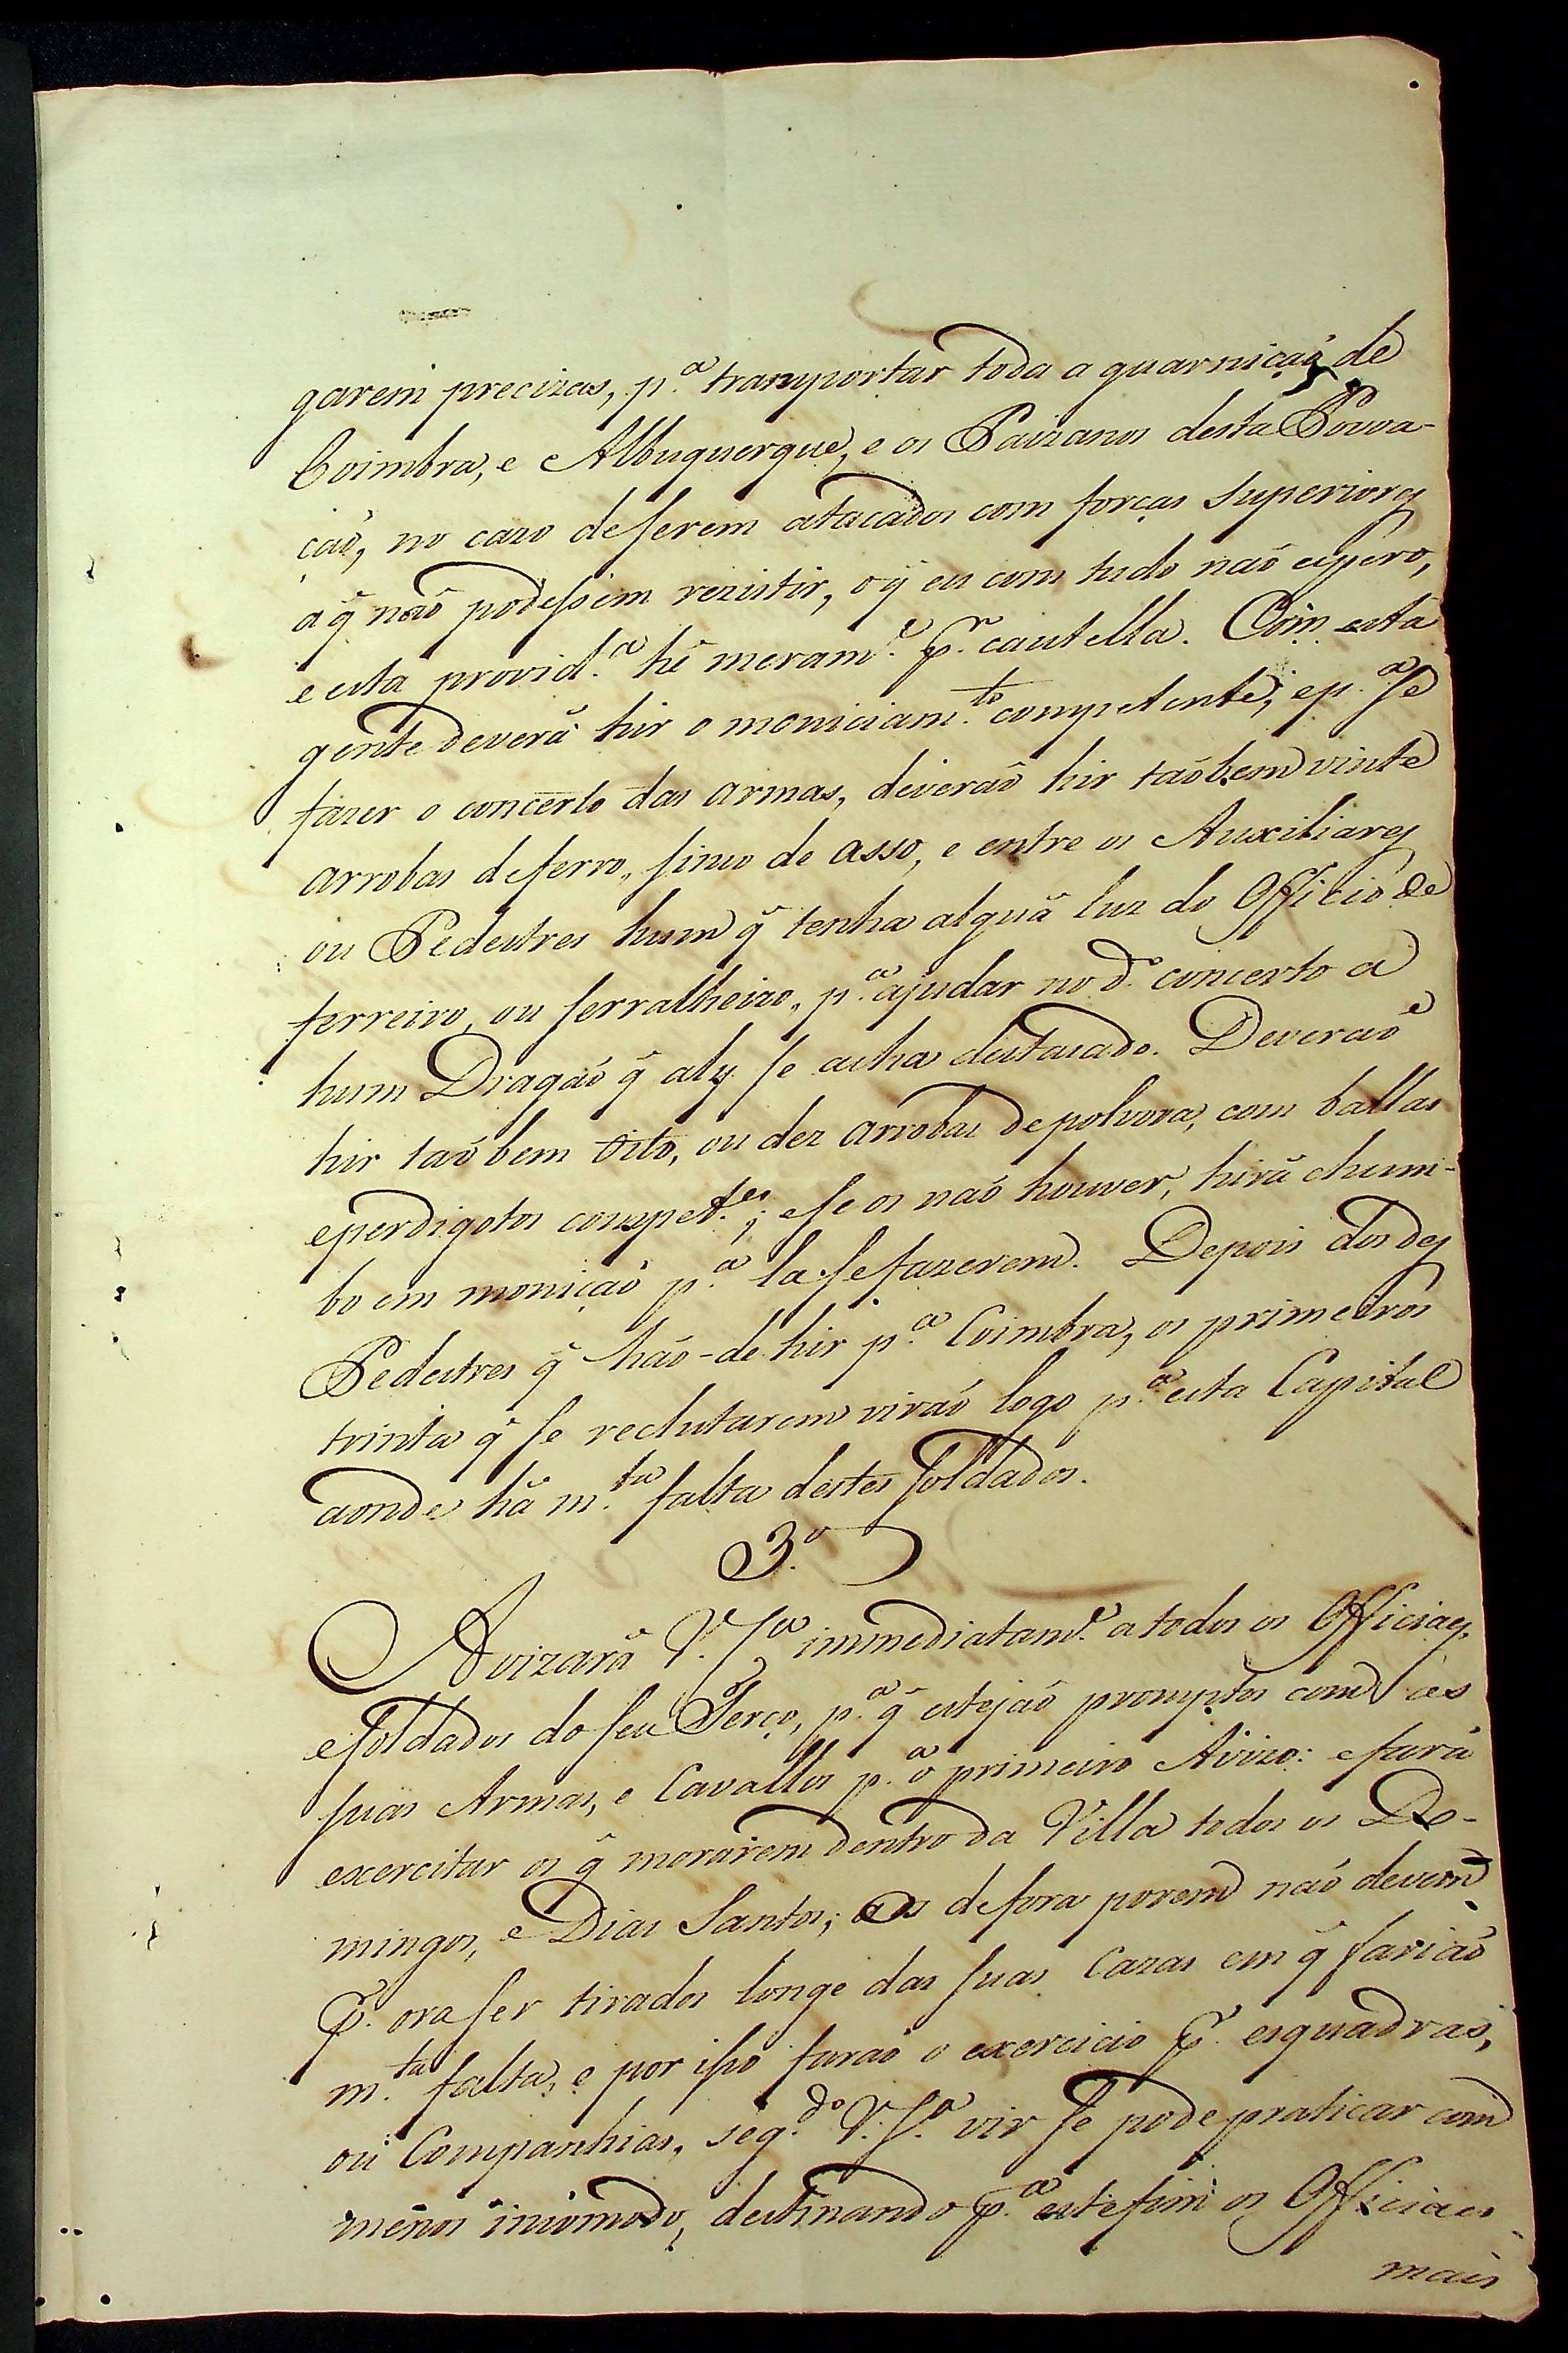 garem precizas, p.ª transportar toda a guarnição de
Coimbra, e Albuquerque, e os Paizanos desta Povoa-
ção, no cazo de serem atacados com forças superiores
a q̃ não podessem rezistir, o q̃ eu com tudo não espero,
e esta provid.ª hé meram.e p.r cautella. Com esta
gente deverá hir o moniciam.to competente; e p.ª se
fazer o concerto das armas, deverão hir tão bem vinte
arrobas de ferro, sinco de asso, e entre os Auxiliares
ou Pedestres hum q̃ tenha alguã luz do Officio de
ferreiro, ou serralheiro, p.ª ajudar no d.º concerto a
hum Dragão q̃ aly se acha destacado. Deverão
hir tão bem oito, ou dez arrobas de polvora, com ballas
e perdigotos compet.es; e se os não houver, hirá chum-
bo em monição p.ª la se fazerem. Depois dos des
Pedestres q̃ hão-de hir p.ª Coimbra, os primeiros
trinta q̃ se reclutarem virão logo p.ª esta Capital
aonde há m.ta falta destes soldados.
3.º
Avizará V. S.ª immediatam.e a todos os Officiaes,
e soldados do seu Terço, p.ª q̃ estejão promptos com as
suas Armas, e Cavallos p.ª o primeiro Avizo: e fará
exercitar os q̃ morarem dentro da Villa todos os Do-
mingos, e Dias Santos; os de fora porem não devem
p.r ora ser tirados longe das suas Cazas em q̃ farião
m.ta falta, e por isso farão o exercicio p.r esquadras,
ou Companhias, seg.do V. S.ª vir se pode praticar com
menos incomodo, destinando p.ª este fim os Officiaes
mais